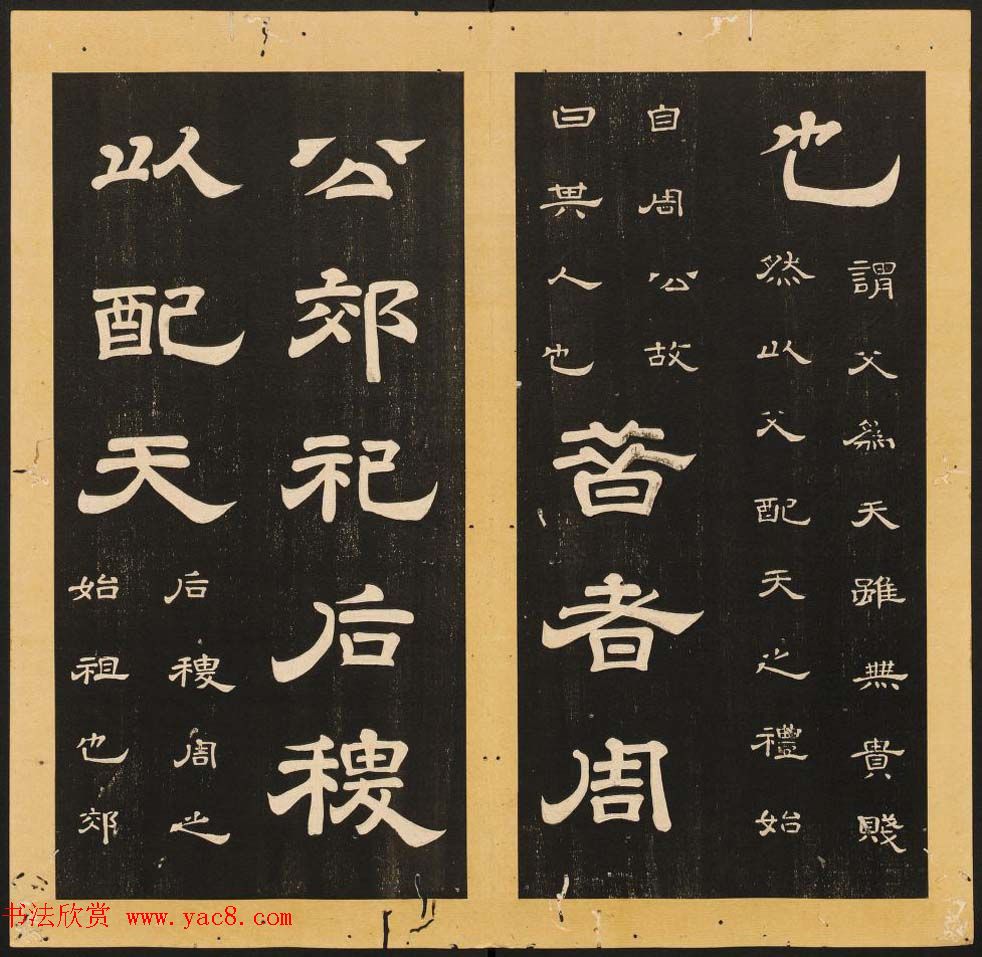 也
謂父爲天雖無貴賤
然以父配天之禮始
自周公故
曰其人也
昔者周
公郊祀后稷
以配天
后稷周之
始祖也郊
书法欣赏 www.yac8.com